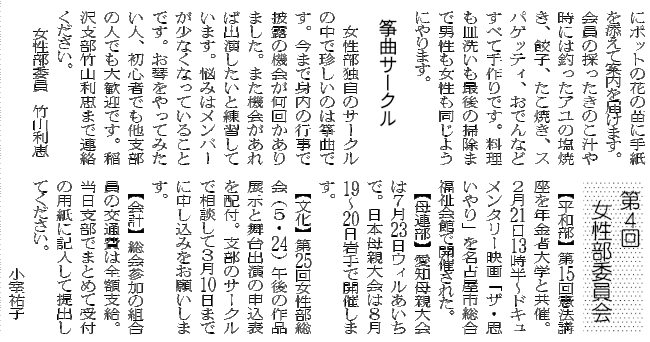 にポットの花の苗に手紙
を添えて案内を届けます。
会員の採ったきのこ汁や
時には釣ったアユの塩焼
き、餃子、たこ焼き、ス
パゲッティ、おでんなど
すべて手作りです。料理
も皿洗いも最後の掃除ま
で男性も女性も同じよう
にやります。
箏曲サークル
女性部独自のサークル
の中で珍しいのは箏曲で
す。今まで身内の行事で
披露の機会が何回かあり
ました。また機会があれ
ば出演したいと練習して
います。悩みはメンバー
が少なくなっていること
です。お琴をやってみた
い人、初心者でも他支部
の人でも大歓迎です。稲
沢支部竹山利恵まで連絡
ください。
女性部委員 竹山利恵
第4回
女性部委員会
【平和部】第15回憲法講
座を年金者大学と共催。
2月21日13時半~ドキュ
メンタリー映画「ザ・思
いやり」を名古屋市総合
福祉会館で開催された。
【母連部】愛知母親大会
は7月23日ウィルあいち
で。日本母親大会は8月
19~20日岩手で開催しま
す。
【文化】第25回女性部総
会(5・24)午後の作品
展示と舞台出演の申込表
を配付。支部のサークル
で相談して3月10日まで
に申し込みをお願いしま
す。
【会計】総会参加の組合
員の交通費は全額支給。
当日支部でまとめて受付
の用紙に記入して提出し
てください。
小室祐子